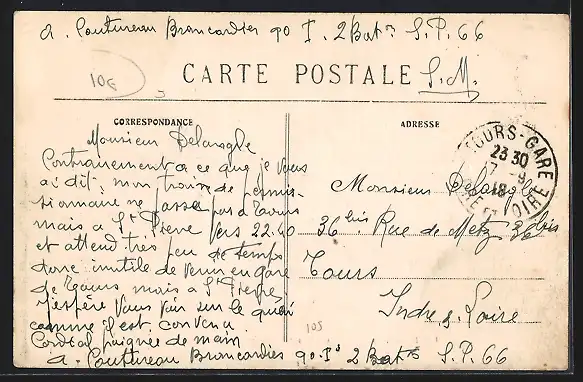 a. Coutureau Brancardier 90 I. 2 Batn S.P. 66
106
CARTE POSTALE S.M.
CORRESPONDANCE
ADRESSE
Monsieur Delarogle
Contrairement a ce que je vous
ai dit, mon train de permis-
sionnaire ne passe pas a Tours
mais a St Pierre vers 22.40
et attend très peu de temps
donc inutile de venir en gare
de Tours mais a St Pierre,
J'espère vous voir sur le quai
comme il est convenu.
Cordial poignée de main
a. Coutureau Brancardier 90 I° 2 Batn S.P. 66
TOURS-GARE
23 30
7 - 9
18
INDRE ET LOIRE
Monsieur Delarogle
36 bis Rue de Metz 36 bis
Tours
Indre & Loire
105